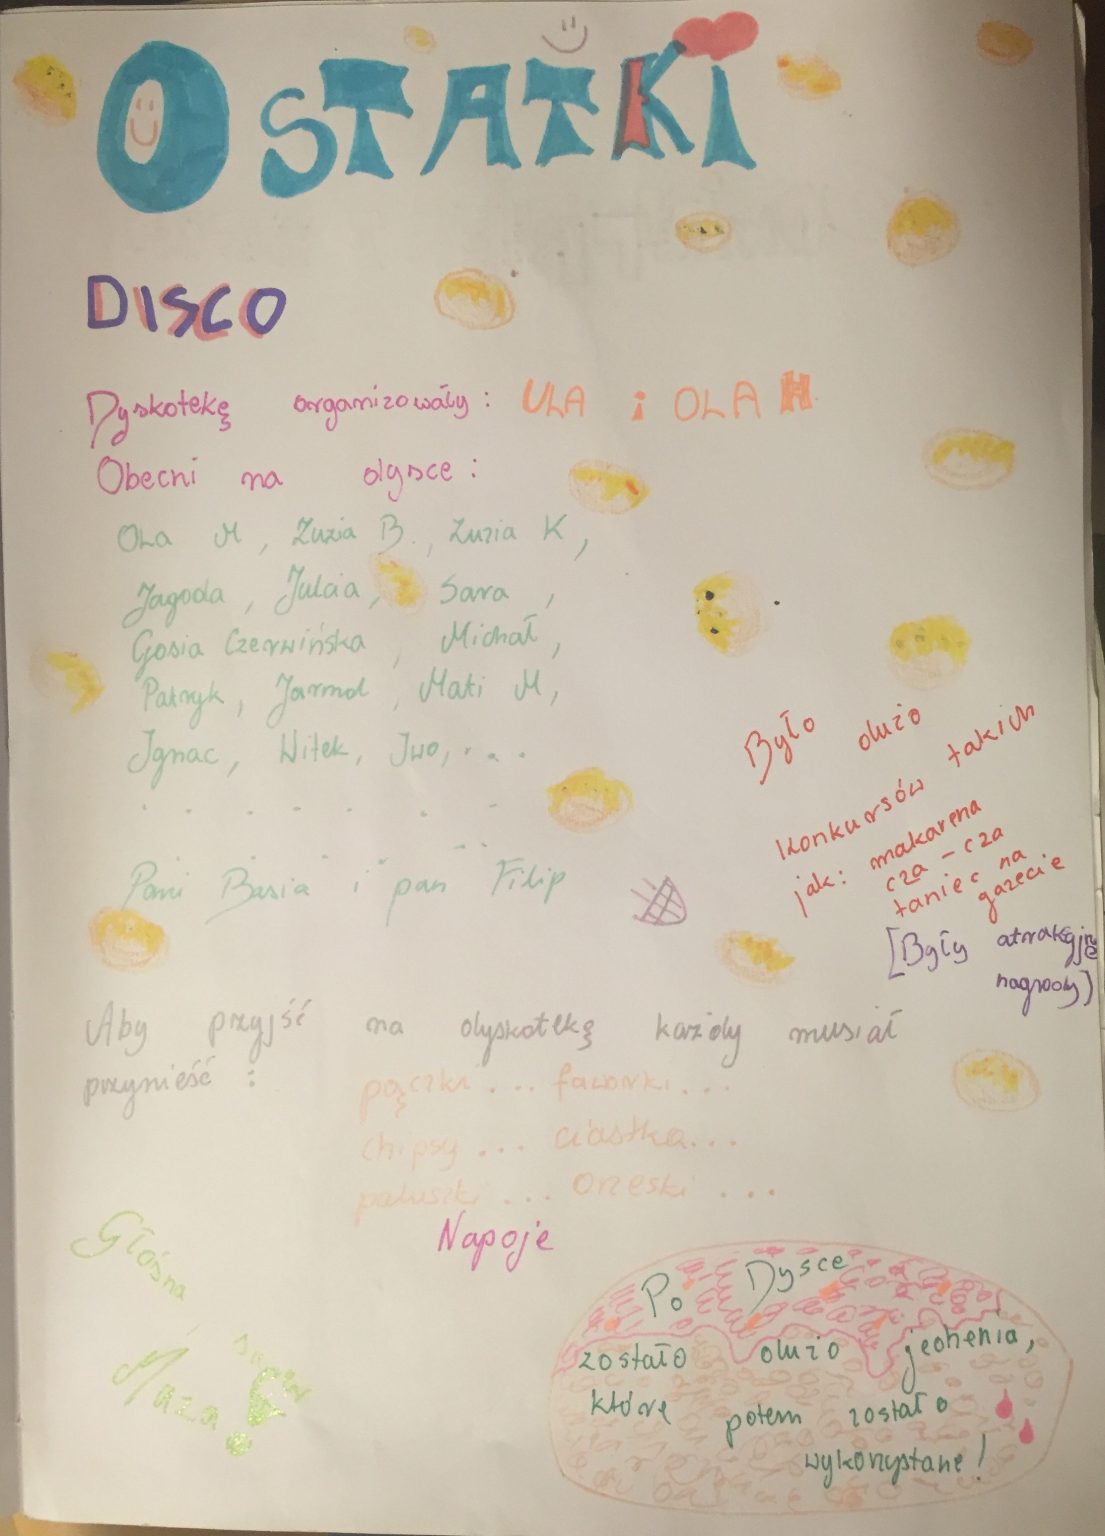 OSTATKI
DISCO
Dyskotekę organizowały: ULA i OLA H
Obecni na dysce:
OLA M, Zuzia B., Zuzia K,
Jagoda, Julcia, Sara,
Gosia Czerwińska, Michał,
Patryk, Jarmol, Mati M,
Ignac, Witek, Iwo, . . .
Pani Basia i pan Filip
Było dużo
konkursów takich
jak: makarena
cza-cza
taniec na
gazecie
[Były atrakcyjne
nagrody]
Aby przyjść na dyskotekę każdy musiał
przynieść:
pączki ... faworki...
chipsy ... ciastka...
paluszki ... orzeski ...
Napoje
Głośna
Muza
Po Dysce
zostało dużo jedzenia,
które potem zostało
wykorzystane!